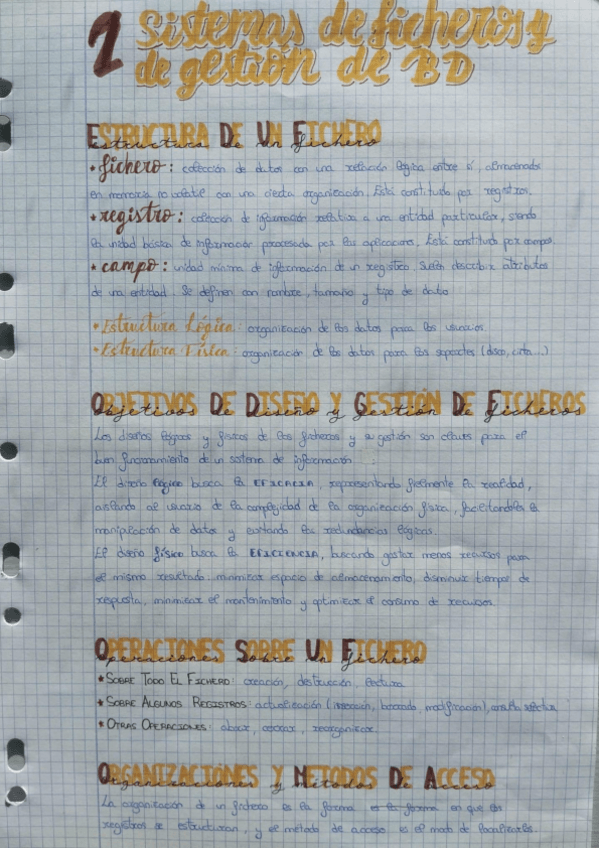 1 Sistemas de ficheros y
de gestión de BD
Estructura De Un Fichero
• fichero: colección de datos con una relación lógica entre sí, almacenada
en memoria no volátil con una cierta organización. Está constituido por registros.
• registro: colección de información relativa a una entidad particular, siendo
la unidad básica de información procesada por las aplicaciones. Está constituido por campos.
• campo: unidad mínima de información de un registro. Suelen describir atributos
de una entidad. Se definen con nombre, tamaño y tipo de dato
• Estructura Lógica: organización de los datos para los usuarios.
• Estructura Física: organización de los datos para los soportes (disco, cinta...)
Objetivos De Diseño y Gestión De Ficheros
Los diseños lógicos y físicos de los ficheros y su gestión son claves para el
buen funcionamiento de un sistema de información
El diseño lógico busca la EFICIENCIA, representando fielmente la realidad,
aislando al usuario de la complejidad de la organización física, facilitándoles la
manipulación de datos y evitando las redundancias lógicas.
El diseño físico busca la EFICIENCIA, buscando gastar menos recursos para
el mismo resultado. minimizar espacio de almacenamiento, disminuir tiempos de
respuesta, minimizar el mantenimiento y optimizar el consumo de recursos.
Operaciones Sobre Un Fichero
• Sobre Todo El Fichero: creación, destrucción, lectura
• Sobre Algunos Registros: actualización (inserción, borrado, modificación), consulta selectiva
• Otras Operaciones: abrir, cerrar, reorganizar.
Organizaciones y Métodos De Acceso
La organización de un fichero es la forma es la forma en que los
registros se estructuran, y el método de acceso es el modo de localizarlos.